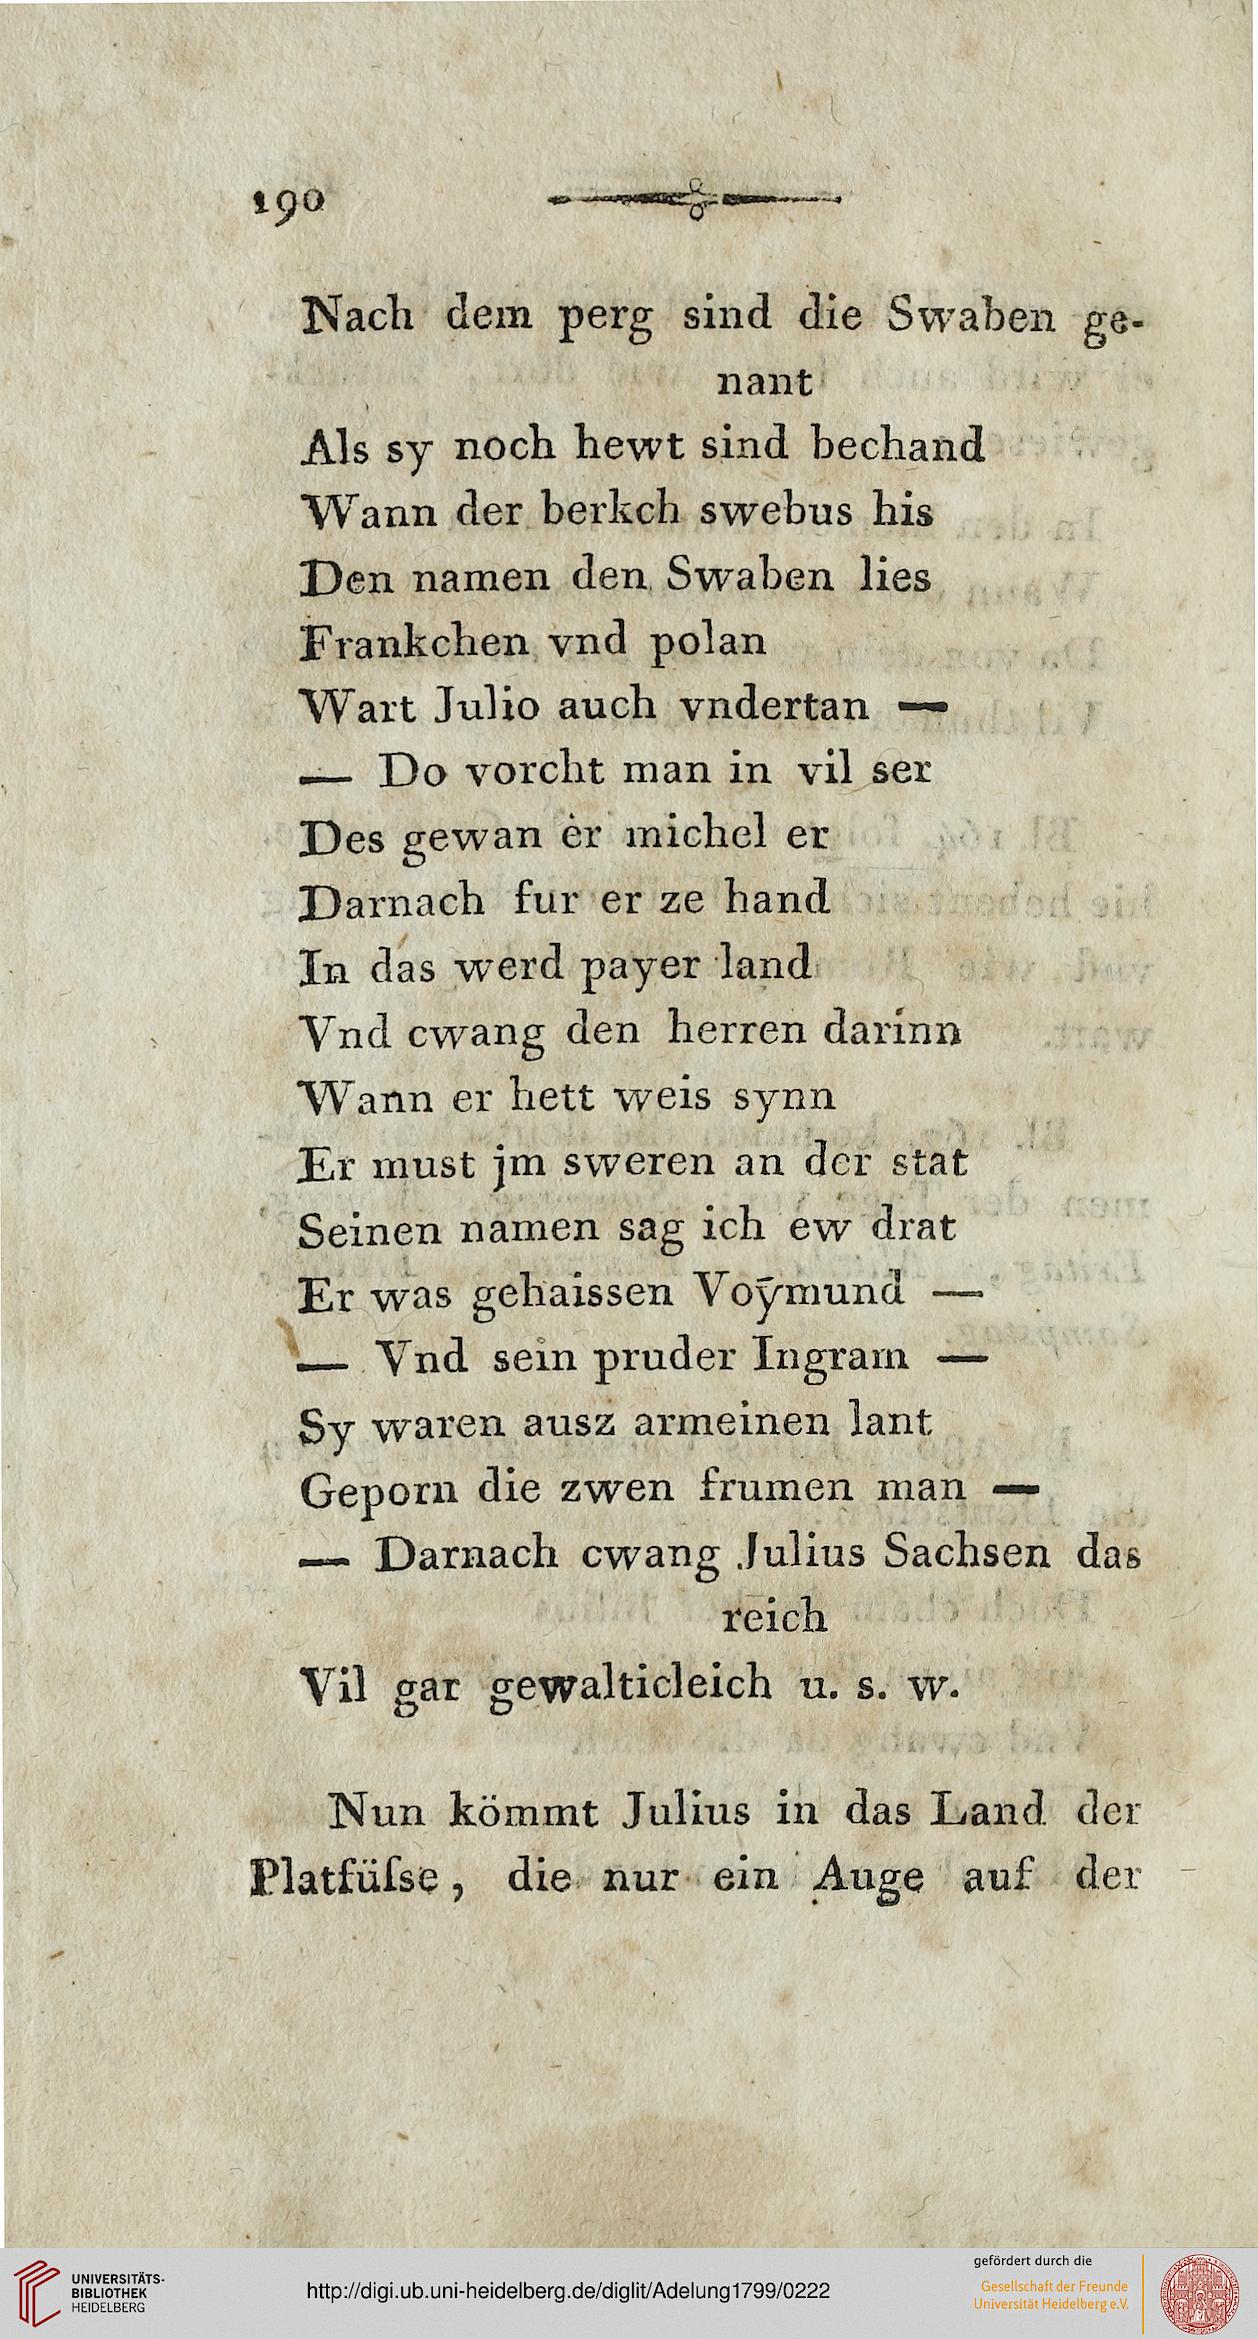 190
Nach dem perg sind die Swaben ge-
nant
Als sy noch hewt sind bechand
Wann der berkch swebus his
Den namen den Swaben lies
Frankchen vnd polan
Wart Julio auch vndertan —
— Do vorcht man in vil ser
Des gewan er michel er
Darnach fur er ze hand
In das werd payer land
Vnd cwang den herren darinn
Wann er hett weis synn
Er must jm sweren an der stat
Seinen namen sag ich ew drat
Er was gehaissen Voȳmund —
— Vnd sein pruder Ingram —
Sy waren ausz armeinen lant
Geporn die zwen frumen man —
— Darnach cwang Julius Sachsen das
reich
Vil gar gewalticleich u. s. w.
Nun kömmt Julius in das Land der
Platfüſse, die nur ein Auge auf der
UNIVERSITÄTS-
BIBLIOTHEK
HEIDELBERG
http://digi.ub.uni-heidelberg.de/diglit/Adelung1799/0222
gefördert durch die
Gesellschaft der Freunde
Universität Heidelberg e.V.